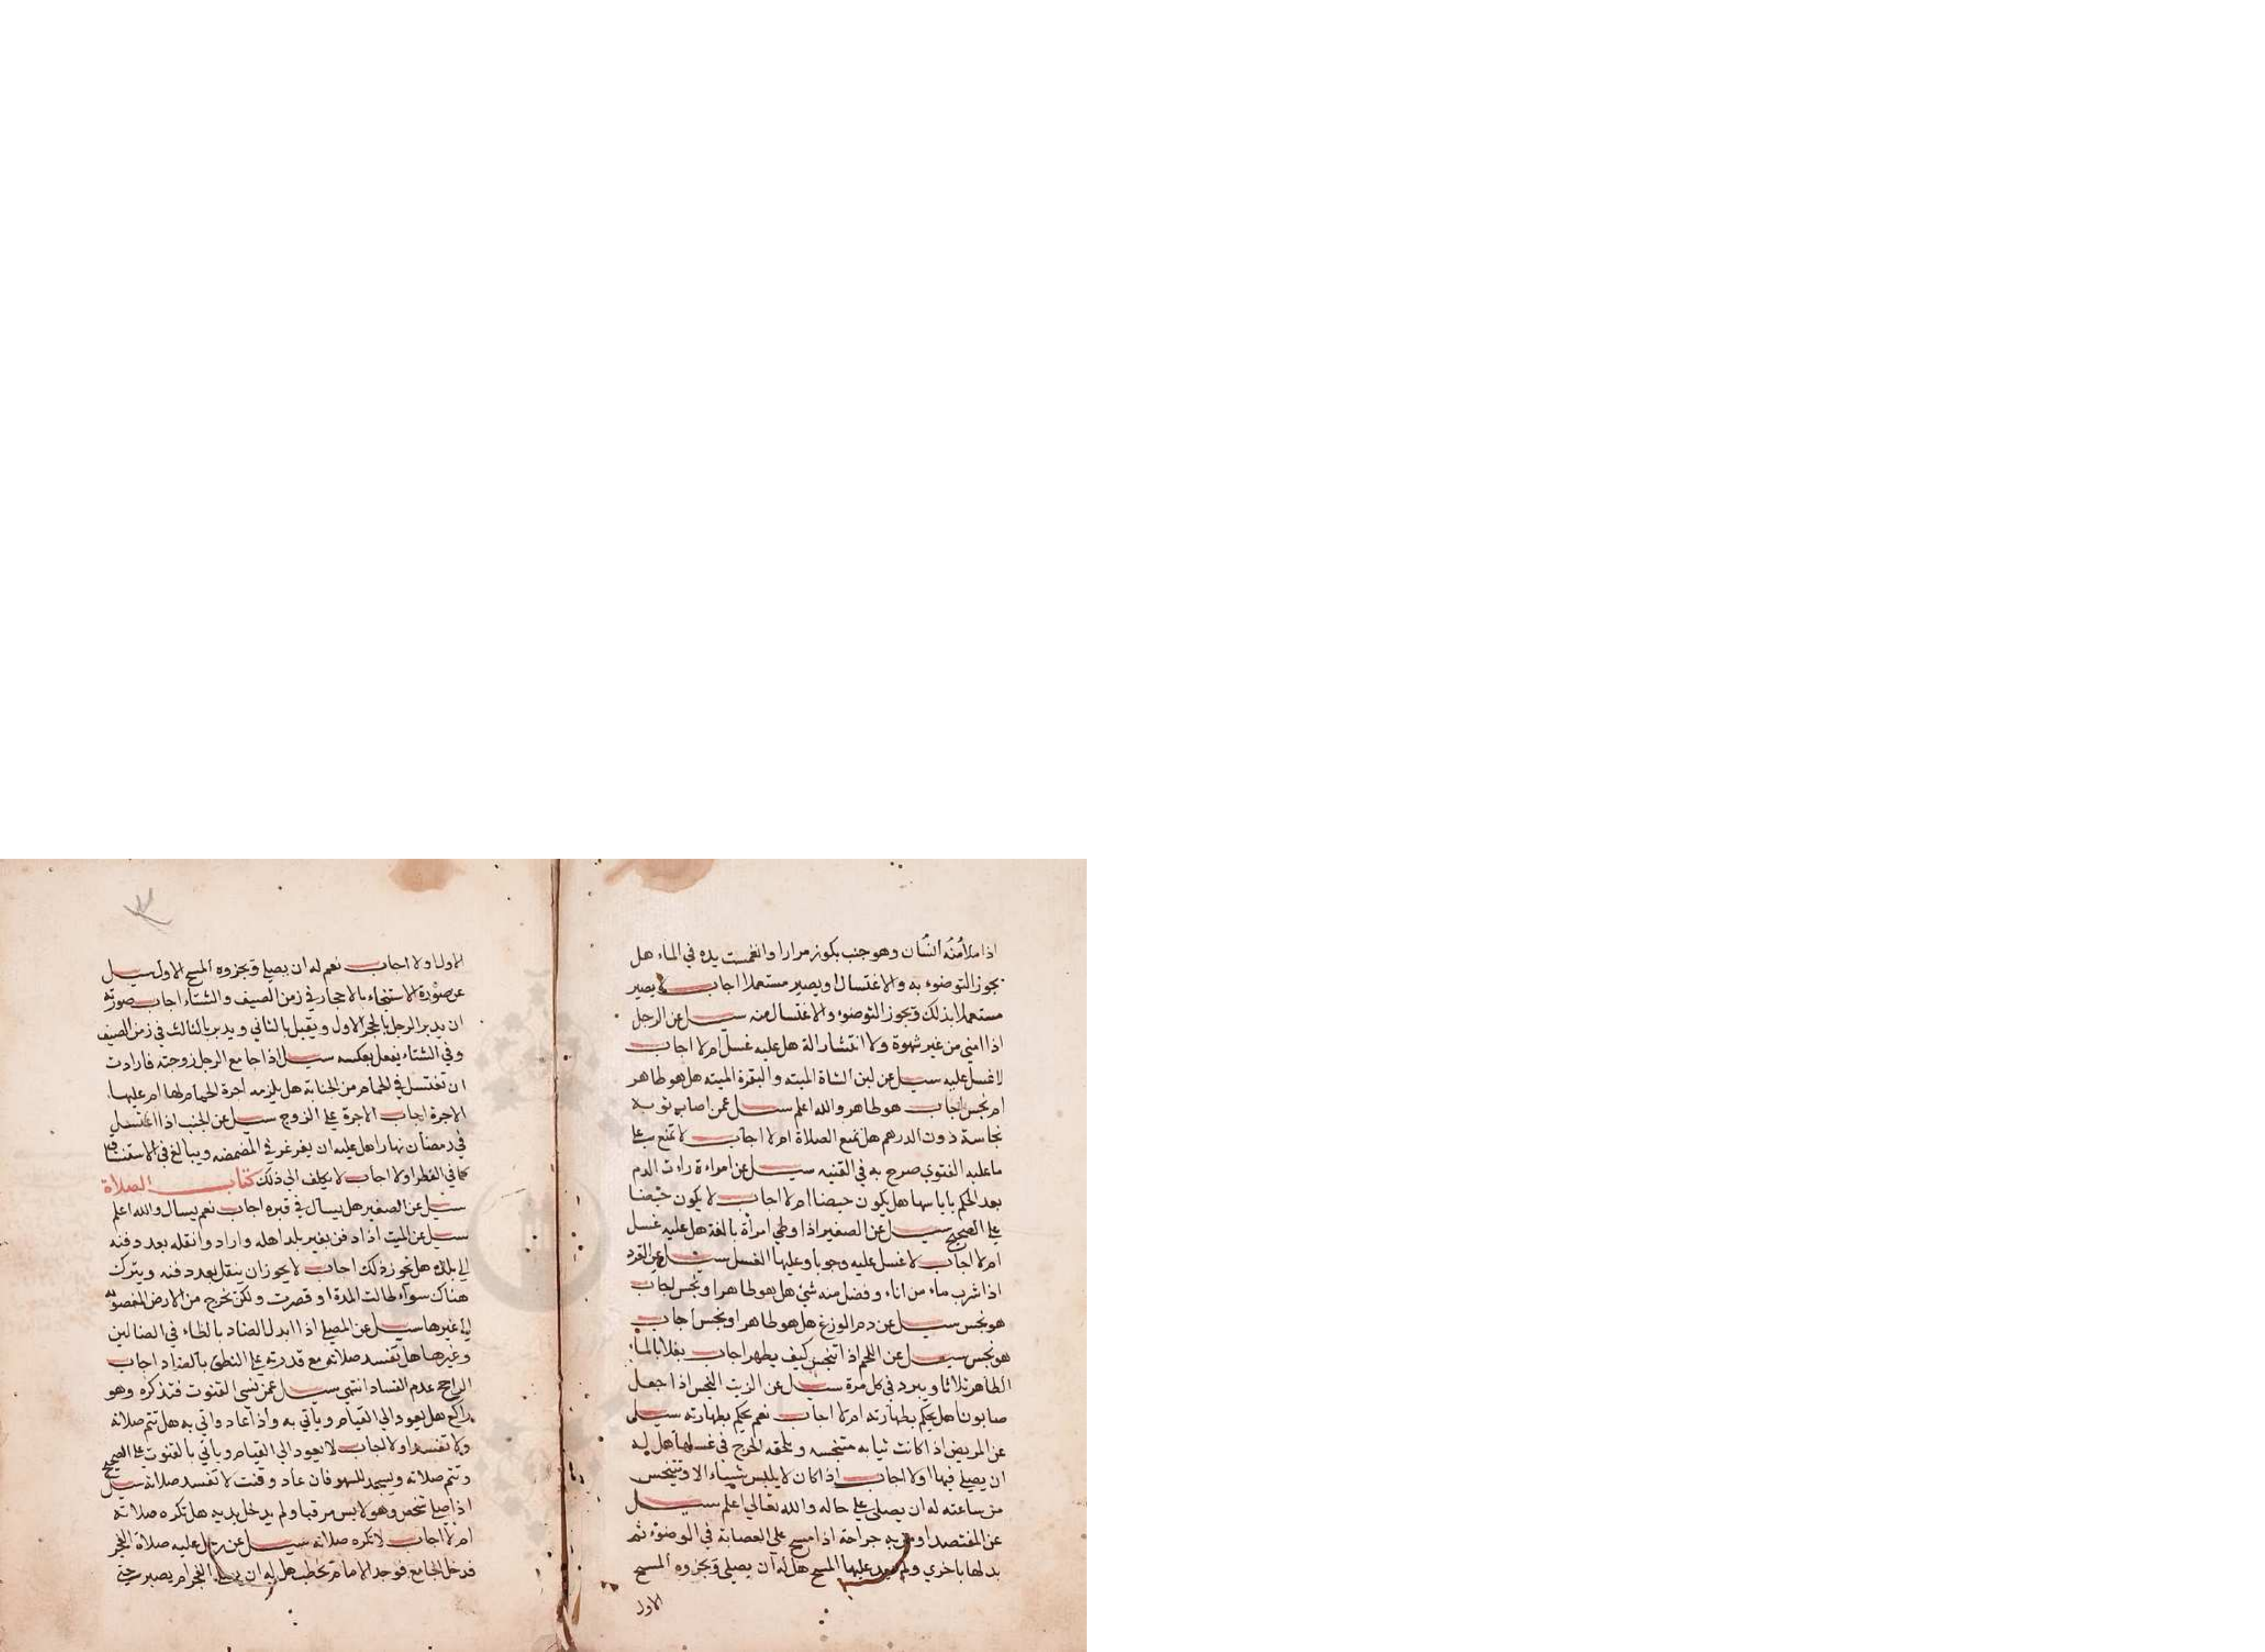 اذا ملا منه انسان وهو جنب بكوز مرارا وانغمست يده في الماء هل
يجوز التوضوء به والاغتسال او يصير مستعملا اجاب لا يصير
مستعملا بذلك ويجوز التوضوء والاغتسال منه سيل عن الرجل
اذا امني من غير شهوة ولا انتشار الة هل عليه غسل ام لا اجاب
لا غسل عليه سيل عن لبن الشاة الميته والبقرة الميته هل هو طاهر
ام نجس اجاب هو طاهر والله اعلم سيل عمن اصاب ثوبه
نجاسة دون الدرهم هل تمنع الصلاة ام لا اجاب لا تمنع علي
ما عليه الفتوي صرح به في القنيه سيل عن امراءة رات الدم
بعد الحكم باياسها هل يكون حيضا ام لا اجاب لا يكون حيضا
علي الصحيح سيل عن الصغير اذا وطي امرأة بالغة هل عليه غسل
ام لا اجاب لا غسل عليه وجوبا وعليها الغسل سيل عن القرد
اذا شرب ماء من اناء وفضل منه شئ هل هو طاهر او نجس اجاب
هو نجس سيل عن دم الوزغ هل هو طاهر او نجس اجاب
هو نجس سيل عن اللحم اذا تنجس كيف يطهر اجاب يغلا بالماء
الطاهر ثلاثا ويبرد في كل مرة سيل عن الزيت النجس اذا جعل
صابونا هل يحكم بطهارته ام لا اجاب نعم يحكم بطهارته سيل
عن المريض اذا كانت ثيابه متنجسه ويلحقه الحرج في غسلها هل له
ان يصلي فيها اولا اجاب اذا كان لا يلبس شيياء الا وتنجس
من ساعته له ان يصلي علي حاله والله تعالي اعلم سيل
عن المفتصد او من به جراحة اذا مسح علي العصابة في الوضوء ثم
بدلها باخري ولم يعد عليها المسح هل له ان يصلي ويجزوه المسح
الاول
الاول اولا اجاب نعم له ان يصلي ويجزوه المسح الاول سيل
عن صورة الاستنجاء بالاحجار في زمن الصيف والشتاء اجاب صورته
ان يدبر الرجل بالحجر الاول ويقبل بالثاني ويدبر بالثالث في زمن الصيف
وفي الشتاء يفعل بعكسه سيل اذا جامع الرجل زوجته فارادت
ان تغتسل في الحمام من الجنابة هل يلزمه اجرة الحمام لها ام عليها
الاجرة اجاب الاجرة علي الزوج سيل عن الجنب اذا اغتسل
في رمضان نهارا هل عليه ان يغرغر في المضمضه ويبالغ في الاستنشاق
كما في الفطر اولا اجاب لا يكلف الي ذلك كتاب الصلاة
سيل عن الصغير هل يسأل في قبره اجاب نعم يسال والله اعلم
سيل عن الميت اذا دفن بغير بلد اهله وارادوا نقله بعد دفنه
الي بلده هل يجوز ذلك اجاب لا يجوز ان ينقل بعد دفنه ويترك
هناك سواء طالت المدة او قصرت ولكن يخرج من الارض المغصوبه
الي غيرها سيل عن المصلي اذا ابدل الضاد بالظاء في الضالين
وغيرها هل تفسد صلاته مع قدرته علي النطق بالضاد اجاب
الراجح عدم الفساد انتهي سيل عمن نسي القنوت فتذكره وهو
راكع هل يعود الي القيام وياتي به واذا عاد واتي به هل تتم صلاته
ولا تفسد اولا اجاب لا يعود الي القيام ويأتي بالقنوت علي الصحيح
وتتم صلاته ويسجد للسهو فان عاد وقنت لا تفسد صلاته سيل
اذا صلي شخص وهو لابس مرقبا ولم يدخل يديه هل تكره صلاته
ام لا اجاب لا تكره صلاته سيل عن رجل عليه صلاة الفجر
فدخل الجامع فوجد الامام يخطب هل له ان يصلي الفجر ام يصبر حتي